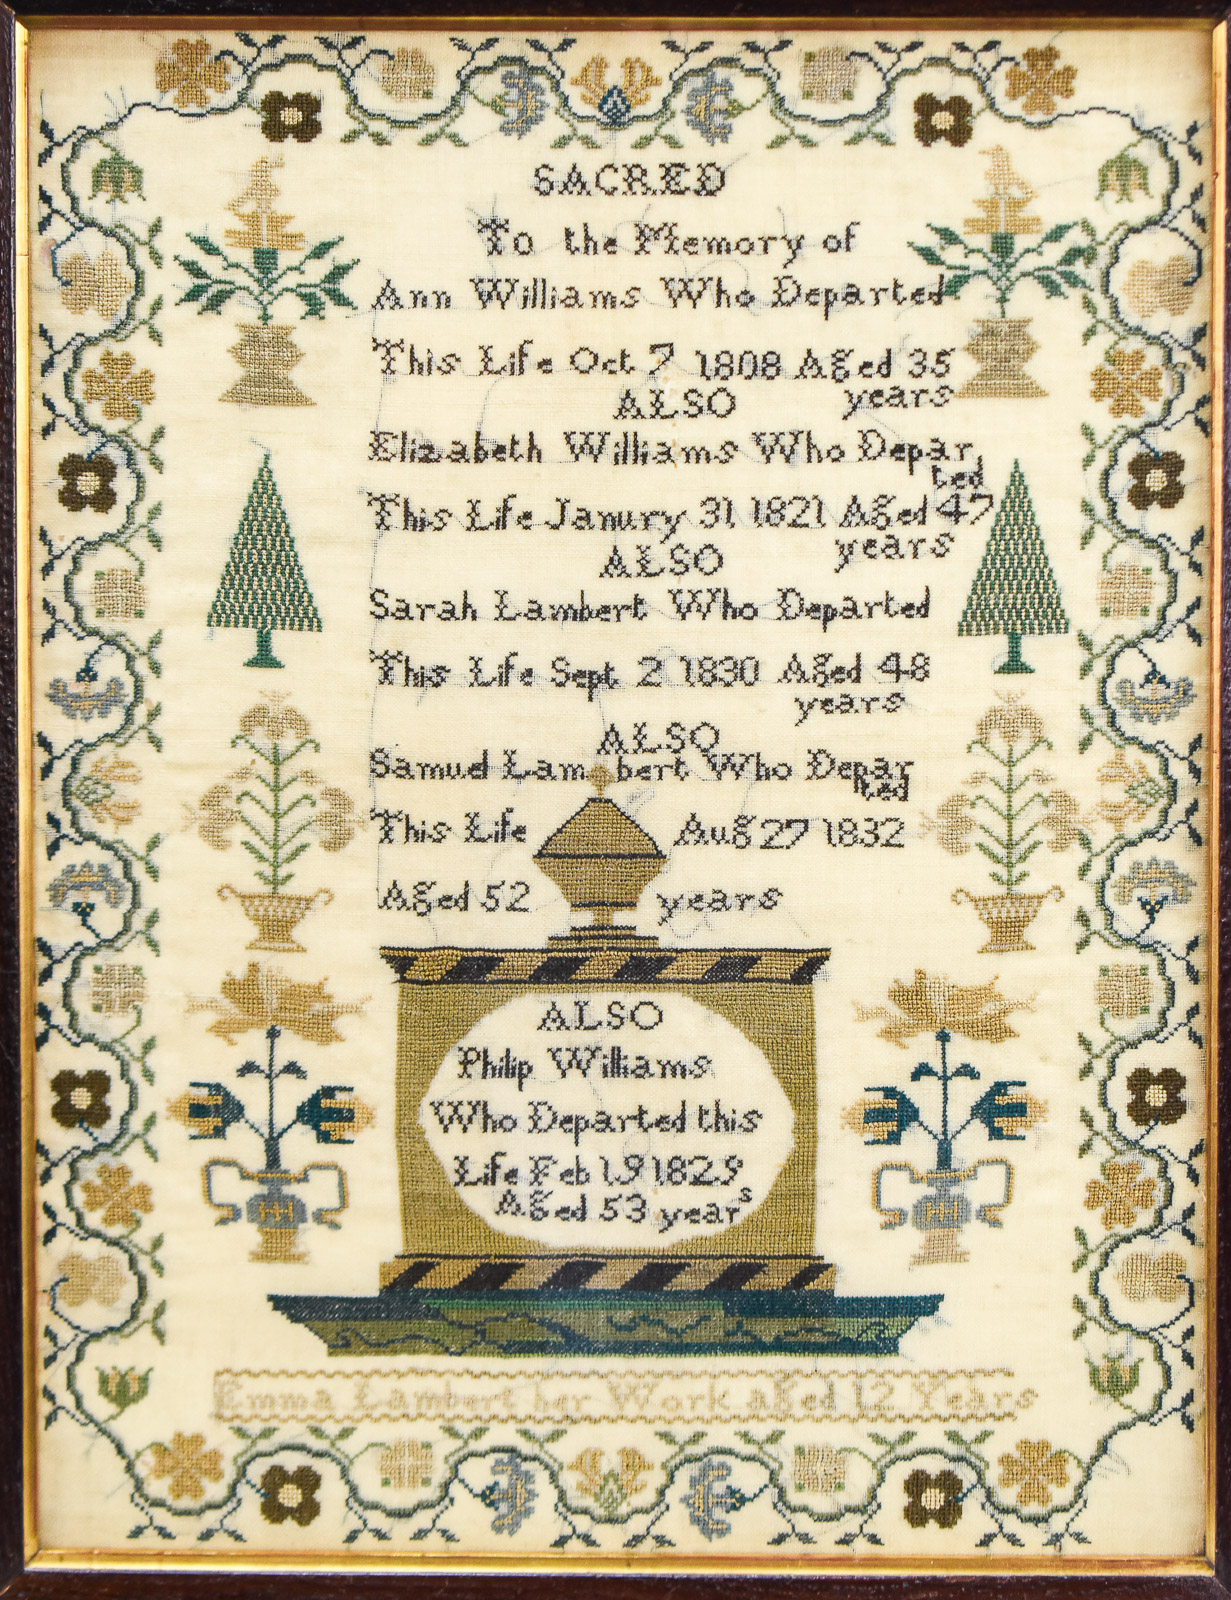 SACRED
To the Memory of
Ann Williams Who Departed
This Life Oct 7 1808 Aged 35
years
ALSO
Elizabeth Williams Who Depar
ted
This Life Janury 31 1821 Aged 47
years
ALSO
Sarah Lambert Who Departed
This Life Sept 2 1830 Aged 48
years
ALSO
Samuel Lambert Who Depar
ted
This Life Aug 27 1832
Aged 52 years
ALSO
Philip Williams
Who Departed this
Life Feb 19 1829
Aged 53 years
Emma Lambert her Work aged 12 Years